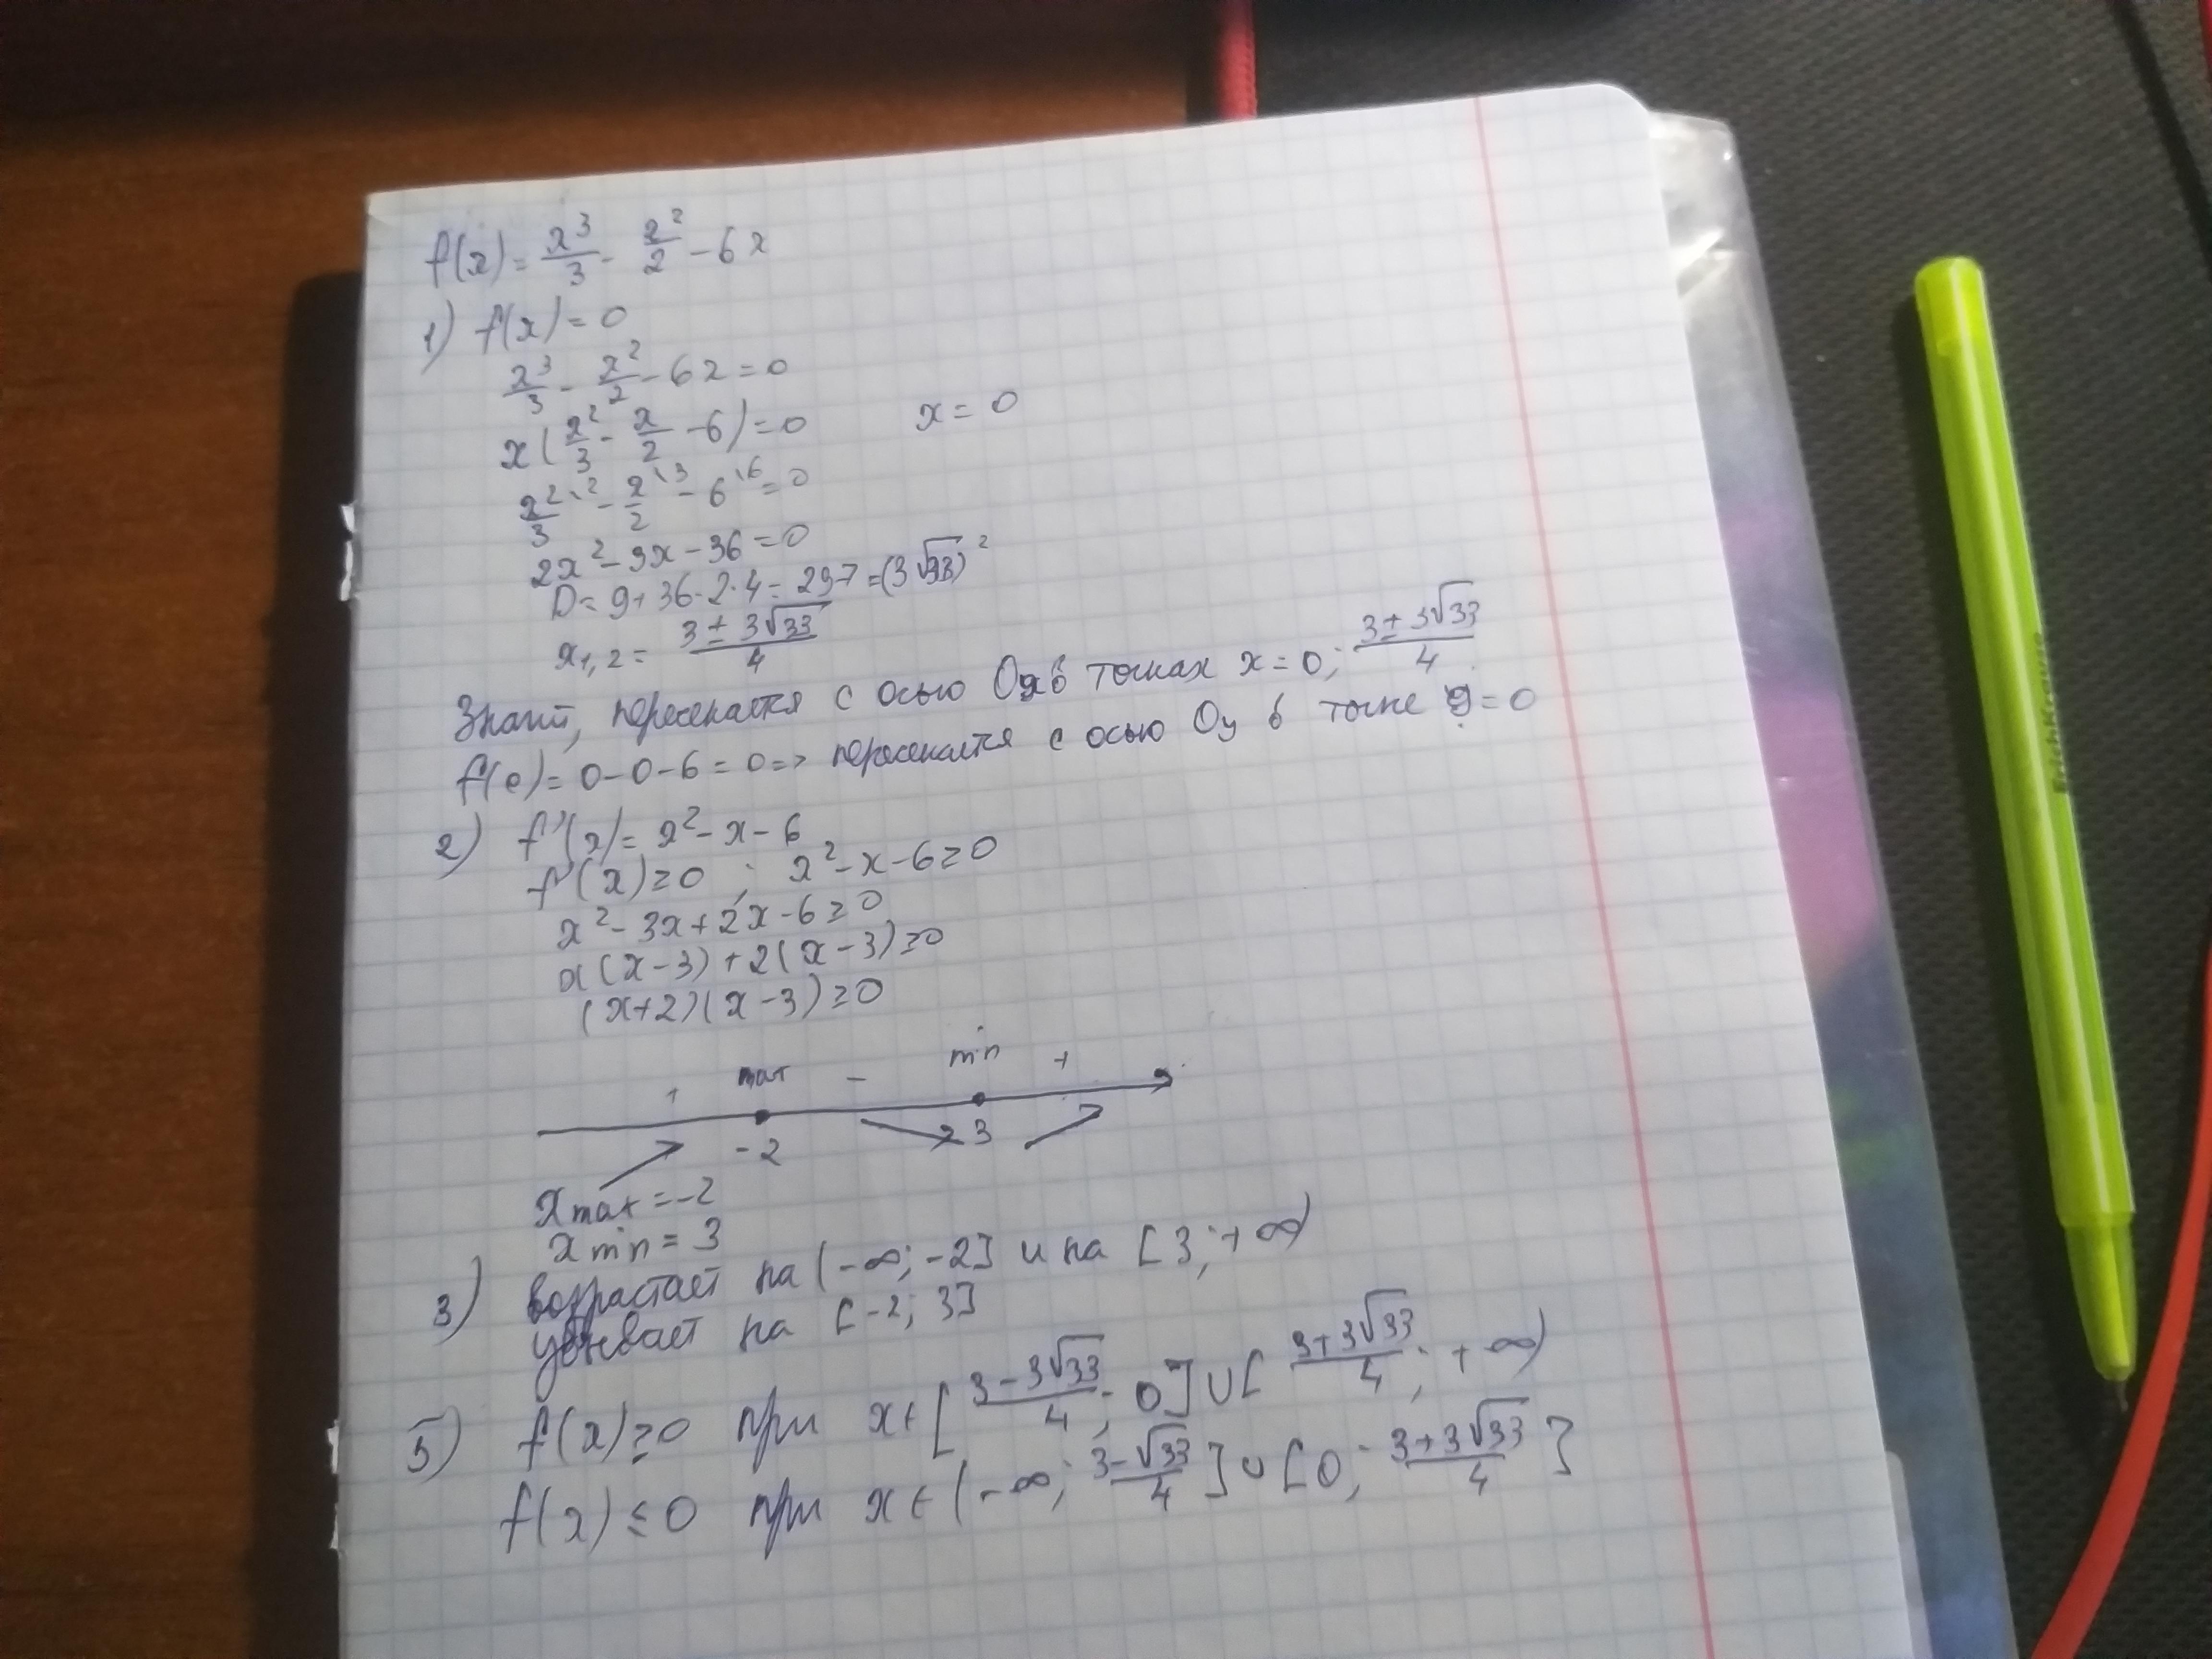 f(x) = x³/3 - x²/2 - 6x
1) f(x) = 0
x³/3 - x²/2 - 6x = 0
x(x²/3 - x/2 - 6) = 0 x = 0
x²/3 \2 - x/2 \3 - 6 \6 = 0
2x² - 3x - 36 = 0
D = 9 + 36·2·4 = 297 = (3√33)²
x₁,₂ = (3 ± 3√33)/4
Значит, пересекается с осью Ox в точках x = 0; (3 ± 3√33)/4
f(0) = 0 - 0 - 6 = 0 => пересекается с осью Oy в точке y = 0
2) f'(x) = x² - x - 6
f'(x) ≥ 0 ; x² - x - 6 ≥ 0
x² - 3x + 2x - 6 ≥ 0
x(x - 3) + 2(x - 3) ≥ 0
(x + 2)(x - 3) ≥ 0
+ max - min +
-2 3
x max = -2
x min = 3
3) возрастает на (-∞; -2] и на [3; +∞)
убывает на [-2; 3]
5) f(x) ≥ 0 при x ∈ [(3 - 3√33)/4; 0] ∪ [(3 + 3√33)/4; +∞)
f(x) ≤ 0 при x ∈ (-∞; (3 - √33)/4] ∪ [0; (3 + 3√33)/4]